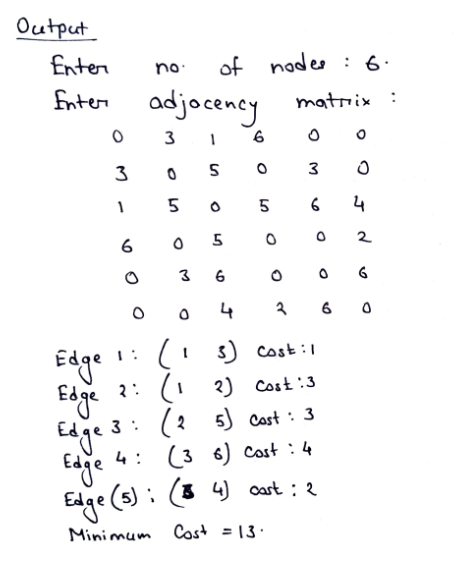 Output
Enter no. of nodes : 6.
Enter adjocency matrix :
0 3 1 6 0 0
3 0 5 0 3 0
1 5 0 5 6 4
6 0 5 0 0 2
0 3 6 0 0 6
0 0 4 2 6 0
Edge 1 : ( 1 3) Cost : 1
Edge 2 : ( 1 2) Cost : 3
Edge 3 : ( 2 5) Cost : 3
Edge 4 : (3 6) Cost : 4
Edge (5) : ( 4) cost : 2
Minimum Cost = 13.